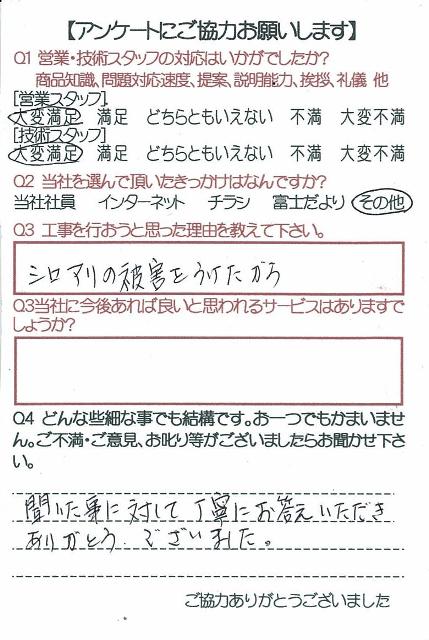 【アンケートにご協力お願いします】
Q1 営業・技術スタッフの対応はいかがでしたか?
商品知識、問題対応速度、提案、説明能力、挨拶、礼儀 他
[営業スタッフ]
大変満足 満足 どちらともいえない 不満 大変不満
[技術スタッフ]
大変満足 満足 どちらともいえない 不満 大変不満
Q2 当社を選んで頂いたきっかけはなんですか?
当社社員 インターネット チラシ 富士だより その他
Q3 工事を行おうと思った理由を教えて下さい。
シロアリの被害をうけたから
Q3当社に今後あれば良いと思われるサービスはありますで
しょうか?
Q4 どんな些細な事でも結構です。お一つでもかまいませ
ん。ご不満・ご意見、お叱り等がございましたらお聞かせ下さ
い。
聞いた事に対して丁寧にお答えいただき
ありがとうございました。
ご協力ありがとうございました